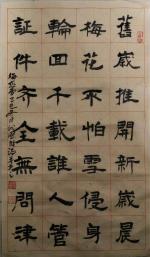 舊歲推開新歲晨
梅花不怕雪侵身
輪回千載誰人管
証件齐全無問津